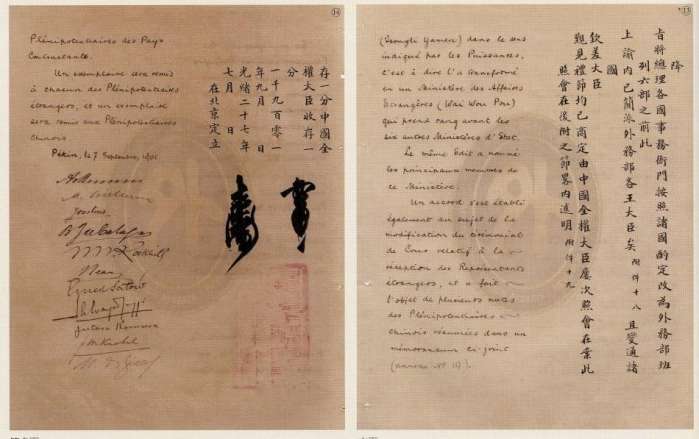 14
Plénipotentiaires des Pays
Contractants.
Un exemplaire sera remis
à chacun des Plénipotentiaires
étrangers, et un exemplaire
sera remis aux Plénipotentiaires
Chinois.
Pékin, le 7 Septembre, 1901
存一分中國全
權大臣收存一
分
一千九百零一
年九月 日
光緒二十七年
七月 日
在北京定立
15
(Tsongli Yamen) dans le sens
indiqué par les Puissances,
c'est à dire l'a transformé
en un Ministère des Affaires
Etrangères (Wai Wou Pou)
qui prend rang avant les
six autres Ministères d'Etat.
Le même Edit a nommé
les principaux membres de
ce Ministère.
Un accord s'est établi
également au sujet de la
modification du cérémonial
de Cour relatif à la
réception des Représentants
étrangers, et a fait
l'objet de plusieurs notes
des Plénipotentiaires
Chinois résumées dans un
mémorandum ci-joint
(annexe No 19).
降
旨將總理各國事務衙門按照諸國酌定改為外務部班
列六部之前此
上諭內已簡派外務部各王大臣矣附件十八且變通諸
國
欽差大臣
覲見禮節均已商定由中國全權大臣屢次照會在案此
照會在後附之節略內述明附件十九